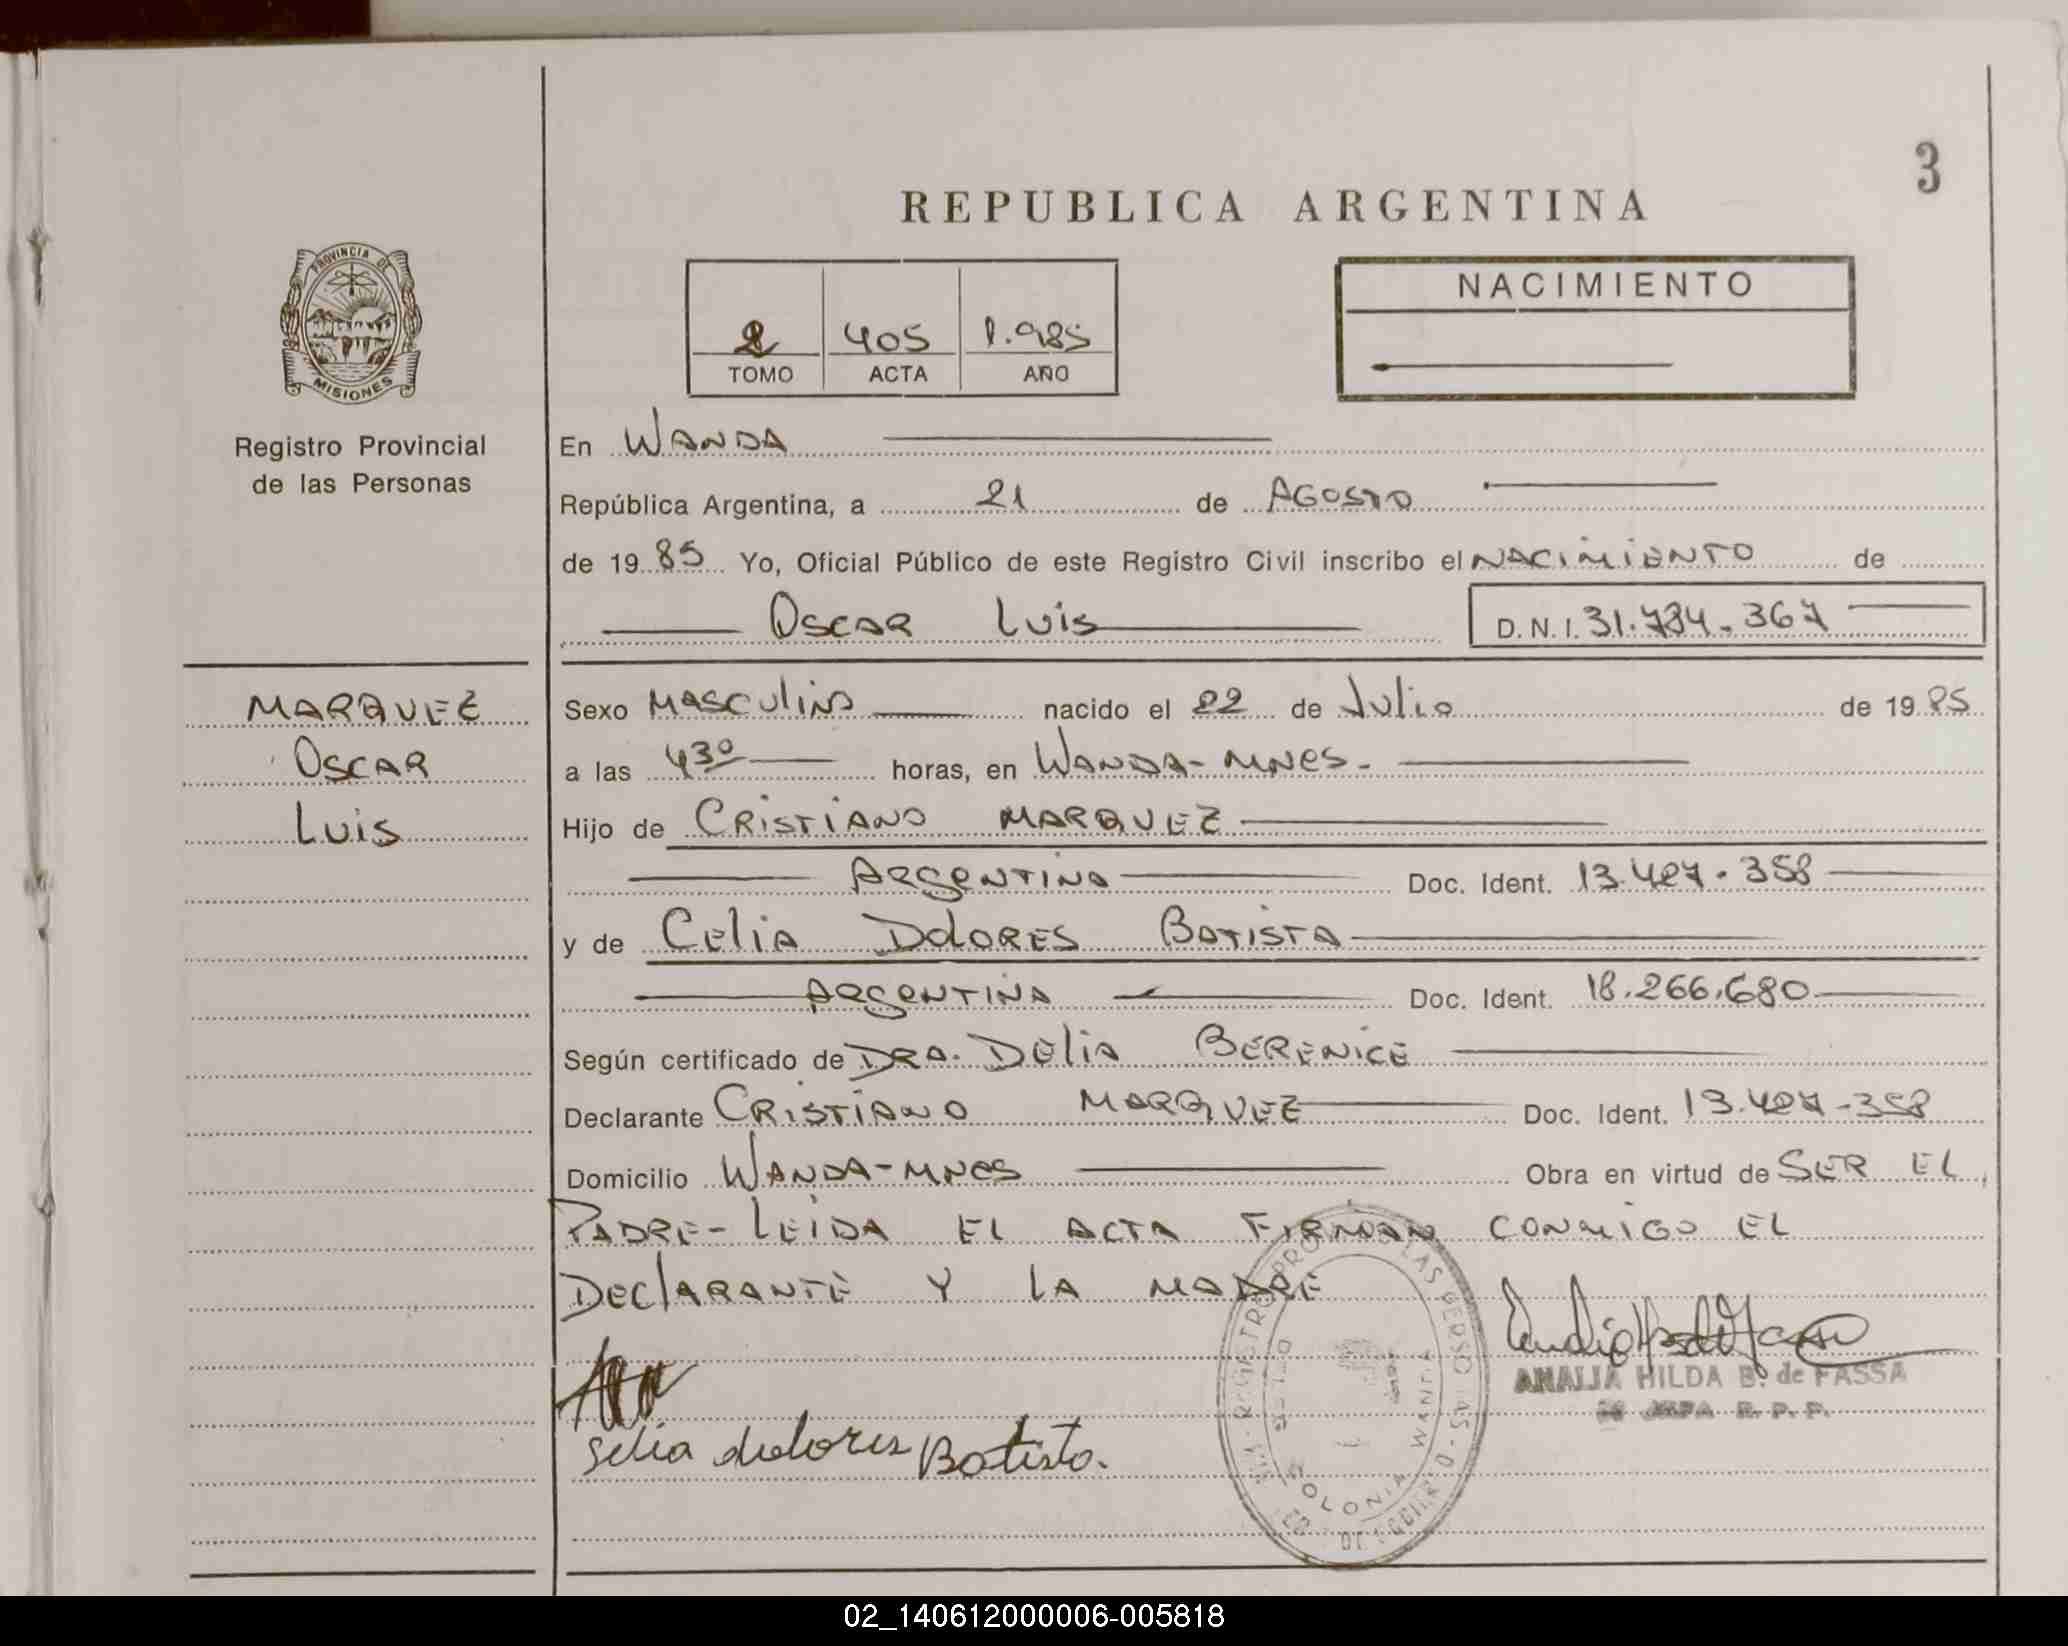 3
REPUBLICA ARGENTINA
PROVINCIA DE
MISIONES
Registro Provincial
de las Personas
2 405 1.985
TOMO ACTA AÑO
NACIMIENTO
En WANDA
República Argentina, a 21 de AGOSTO
de 1985 Yo, Oficial Público de este Registro Civil inscribo el NACIMIENTO de
OSCAR LUIS
D.N.I. 31.734.367
MARQUEZ
OSCAR
LUIS
Sexo MASCULINO nacido el 22 de JULIO de 1985
a las 4³⁰ horas, en WANDA-MNES.
Hijo de CRISTIANO MARQUEZ
ARGENTINO Doc. Ident. 13.427.358
y de CELIA DOLORES BATISTA
ARGENTINA Doc. Ident. 18.266.680
Según certificado de DRA. DELIA BERENICE
Declarante CRISTIANO MARQUEZ Doc. Ident. 13.427-358
Domicilio WANDA-MNES Obra en virtud de SER EL
PADRE-LEIDA EL ACTA FIRMAN CONMIGO EL
DECLARANTE Y LA MADRE
ANALIA HILDA B. de FASSA
JEFA R. P. P.
Selia dolores Batista.
COLONIA WANDA
02_140612000006-005818